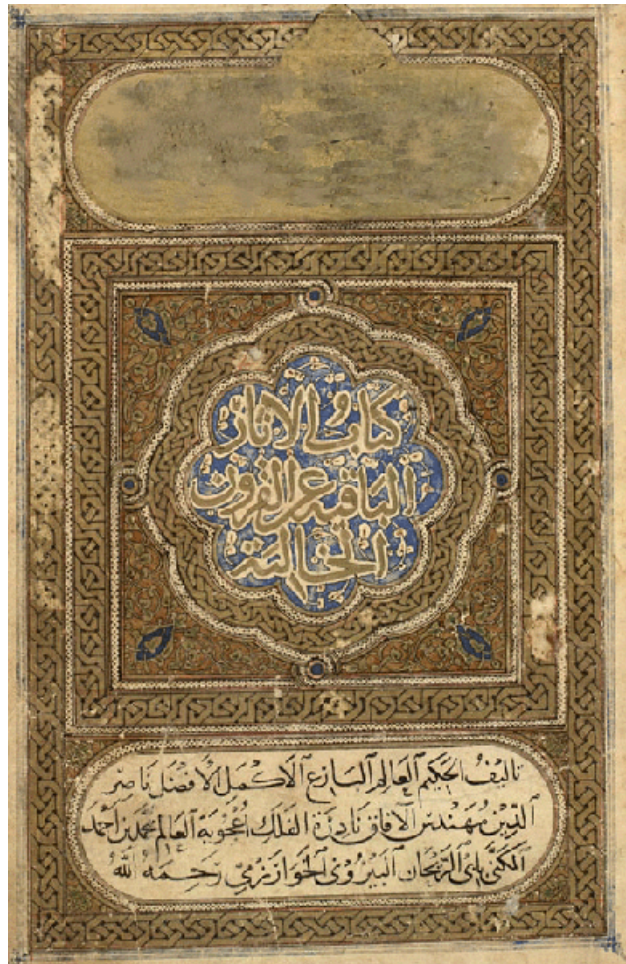 كتاب الاثار
الباقية عن القرون
الخالية
تاليف الحكيم العالم البارع الاكمل الافضل ناصر
الدين مهندس الآفاق نادرة الفلك اعجوبة العالم محمد بن احمد
المكنى بابى الريحان البيرونى الخوارزمي رحمه الله